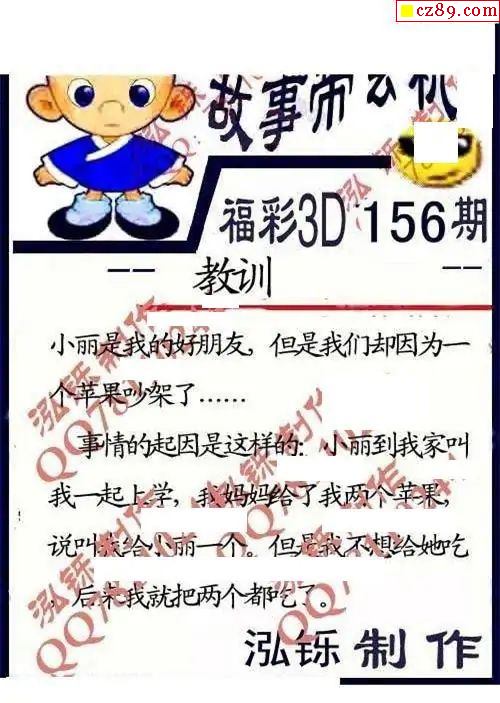 cz89.com
故事带玄机
福彩3D 156期
教训
小丽是我的好朋友，但是我们却因为一
个苹果吵架了……
事情的起因是这样的：小丽到我家叫
我一起上学，我妈妈给了我两个苹果，
说叫我给小丽一个。但是我不想给她吃
，后来我就把两个都吃了。
泓铄制作